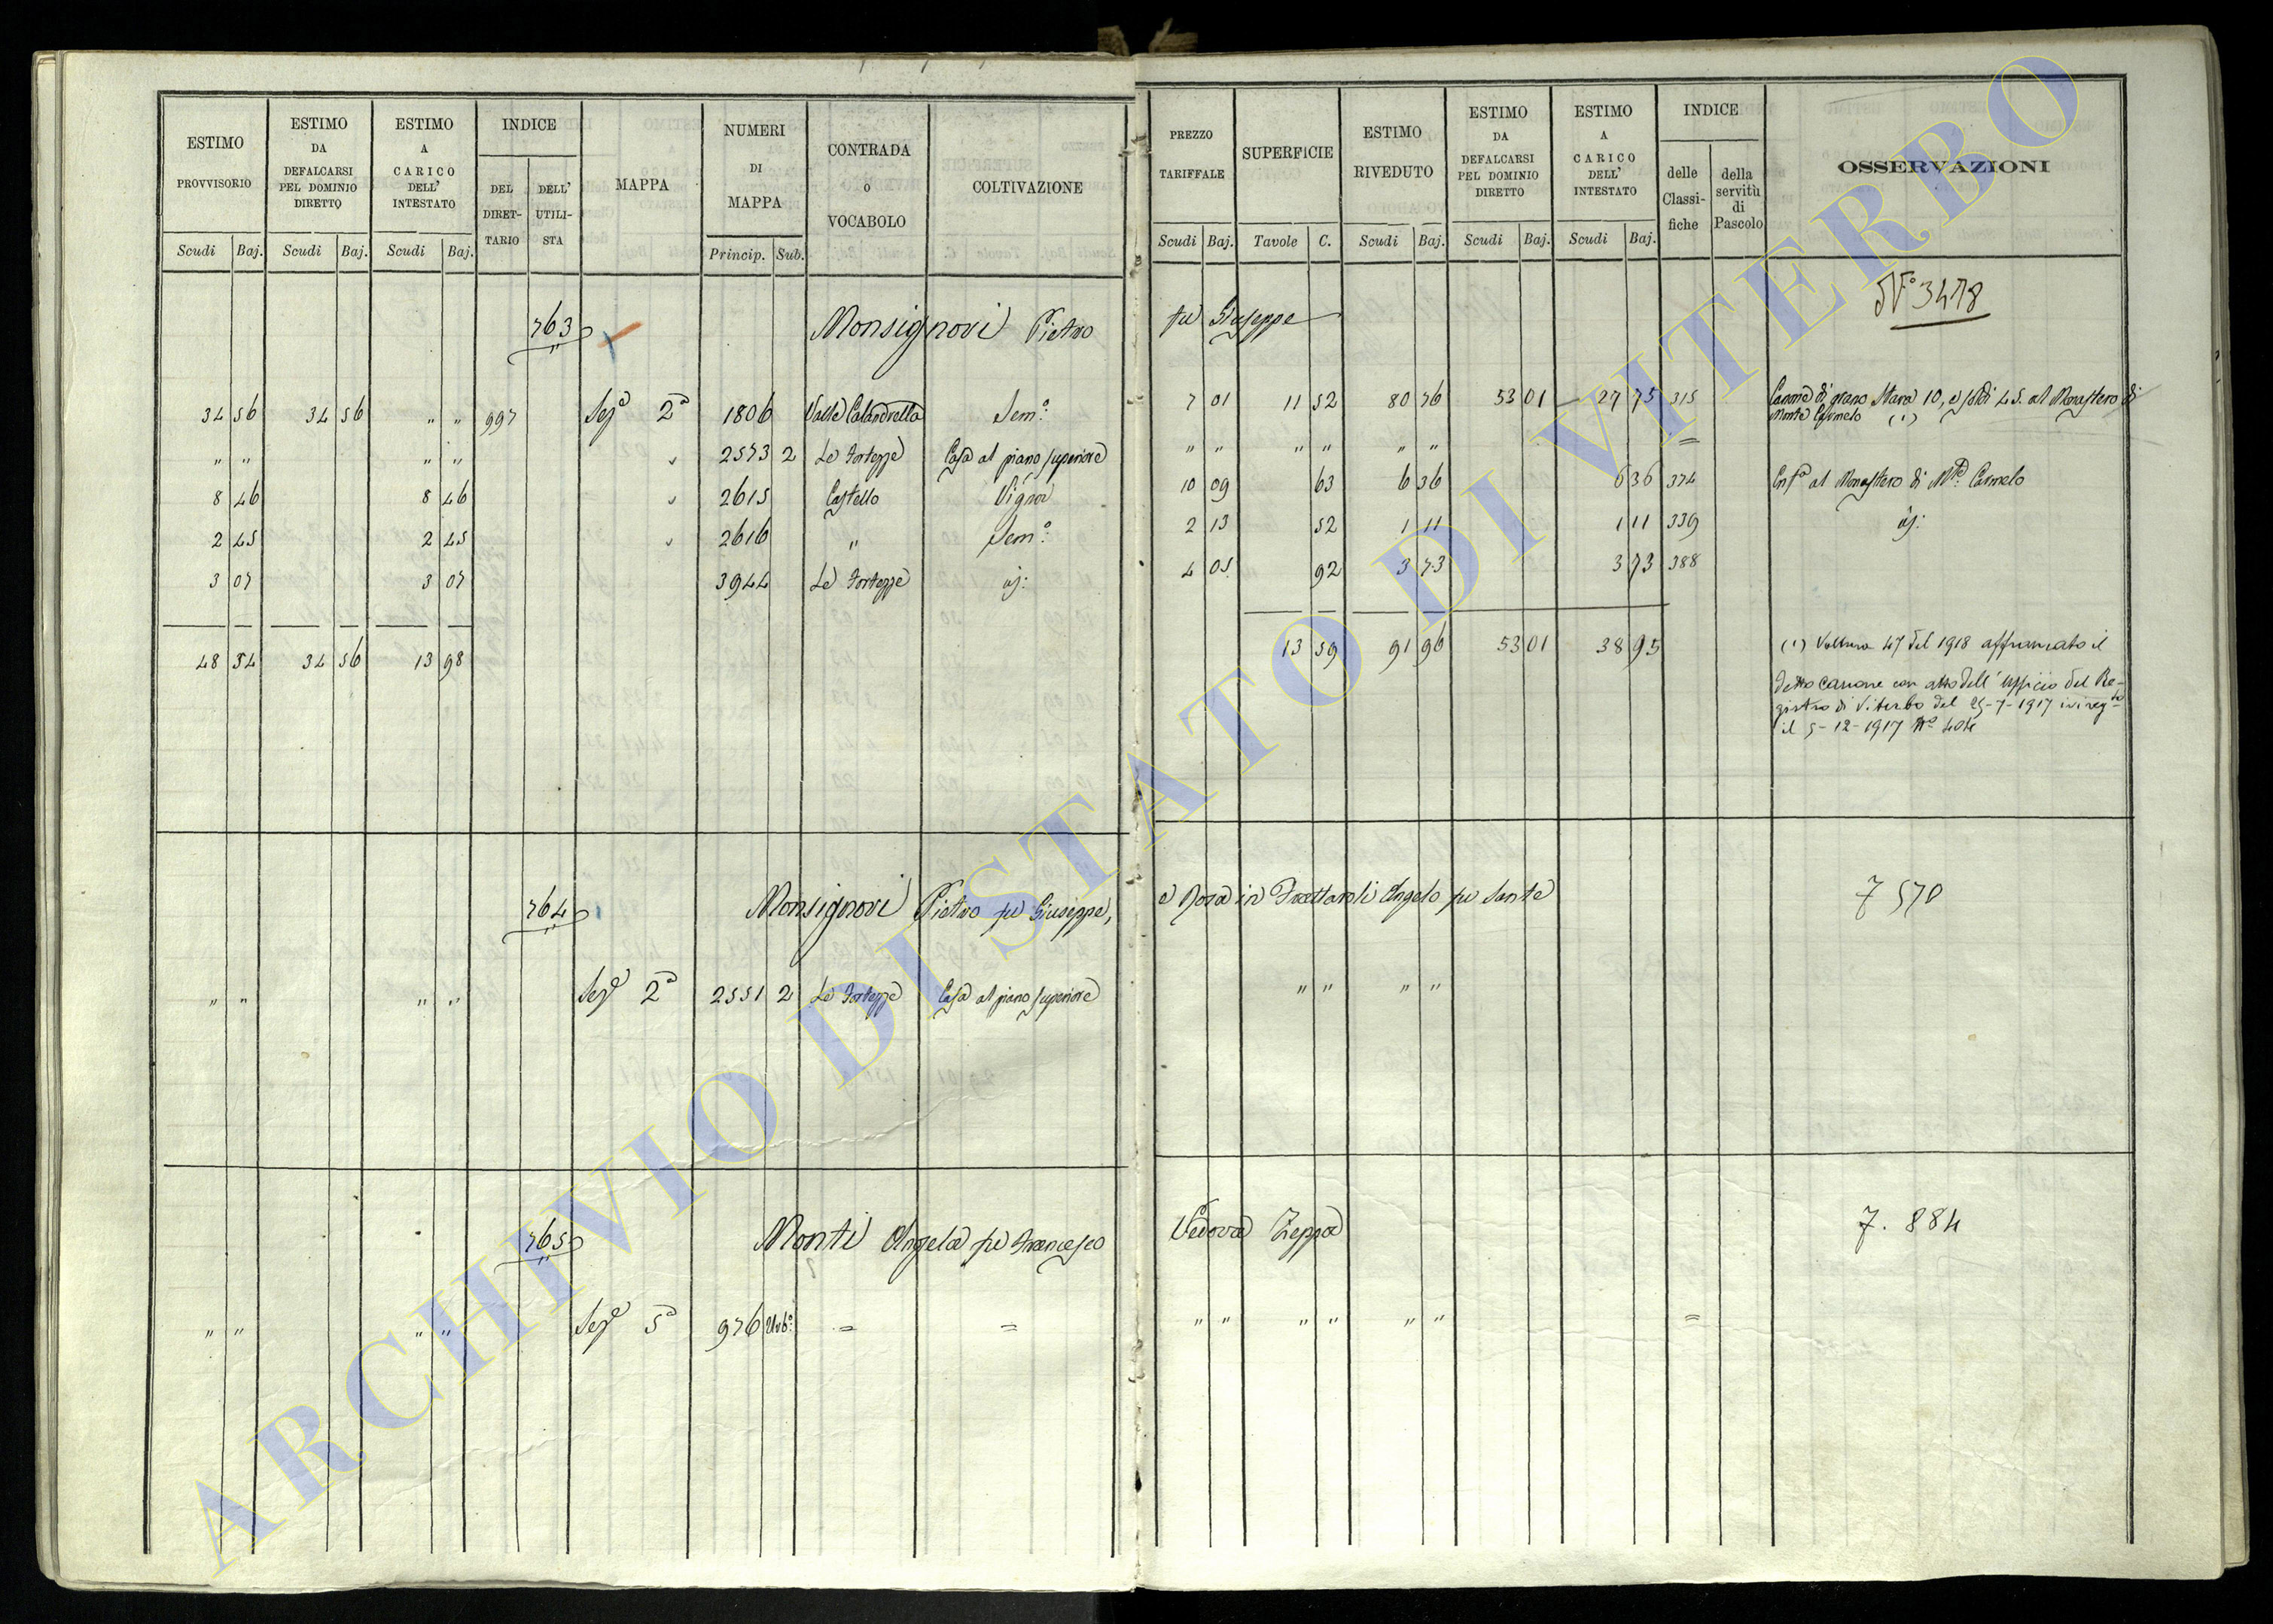 ESTIMO PROVVISORIO Scudi Baj. ESTIMO DA DEFALCARSI PEL DOMINIO DIRETTO Scudi Baj. ESTIMO A CARICO DELL' INTESTATO Scudi Baj. INDICE DEL DIRET-TARIO DELL' UTILI-STA MAPPA NUMERI DI MAPPA Princip. Sub. CONTRADA O VOCABOLO COLTIVAZIONE
PREZZO TARIFFALE Scudi Baj. SUPERFICIE Tavole C. ESTIMO RIVEDUTO Scudi Baj. ESTIMO DA DEFALCARSI PEL DOMINIO DIRETTO Scudi Baj. ESTIMO A CARICO DELL' INTESTATO Scudi Baj. INDICE delle Classi-fiche della servitù di Pascolo OSSERVAZIONI
763 Monsignori Pietro fu Giuseppe N° 3478
34 56 34 56 " " 997 Sez.e 2a 1806 Valle Calandrella Sem.o 7 01 11 52 80 76 53 01 27 75 315 Canone di grano Stara 10, e soldi 45. al Monastero di
Monte Carmelo (1)
" " " " 2573 2 Le Fortezze Casa al piano superiore " " " " " " =
8 46 8 46 2615 Castello Vigna 10 09 63 6 36 6 36 374 Enf.a al Monastero di M.te Carmelo
2 45 2 45 2616 " Sem.o 2 13 52 1 11 1 11 339
3 07 3 07 3944 Le Fortezze 4 05 92 3 73 3 73 388
48 54 34 56 13 98 13 59 91 96 53 01 38 95
(1) Voltura 47 del 1918 affrancato il
detto canone con atto dell' Ufficio del Re-
gistro di Viterbo del 25-7-1917 ivi reg.to
il 5-12-1917 N° 404
764 Monsignori Pietro fu Giuseppe, e Rosa in Frattaroli Angelo fu Sante 7 570
" " " " Sez.e 2a 2551 2 Le Fortezze Casa al piano superiore " " " "
765 Monti Angela fu Francesco Vedova Zeppa 7. 884
" " " " Sez.e 5a 976 Urb.o = = " " " " " " =
ARCHIVIO DI STATO DI VITERBO